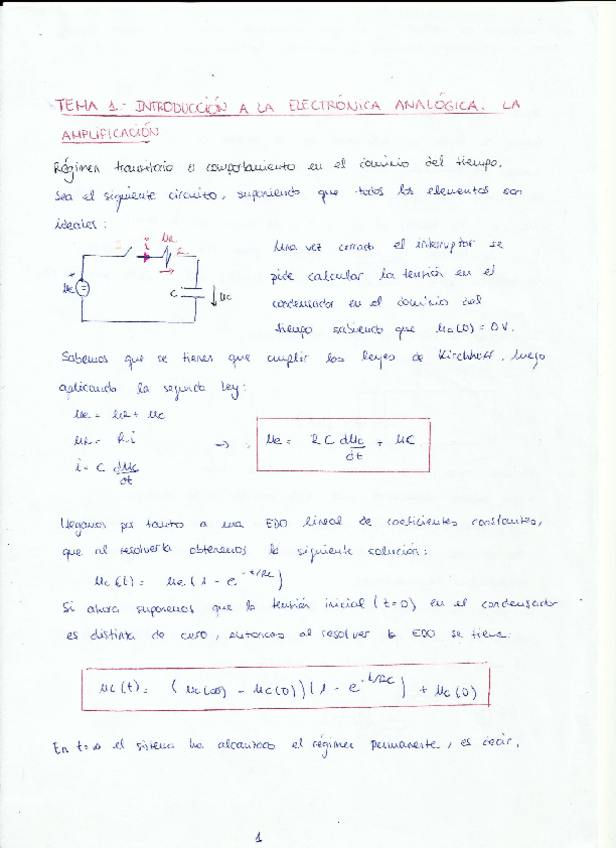 TEMA 1.- INTRODUCCIÓN A LA ELECTRÓNICA ANALÓGICA. LA
AMPLIFICACIÓN
Régimen transitorio o comportamiento en el dominio del tiempo.
Sea el siguiente circuito, suponiendo que todos los elementos son
ideales:
i
uR
R
ue
+
C
uc
Una vez cerrado el interruptor se
pide calcular la tensión en el
condensador en el dominio del
tiempo sabiendo que uc(0) = 0V.
Sabemos que se tienen que cumplir las leyes de Kirchhoff, luego
aplicando la segunda ley:
ue = uR + uc
uR = R·i
i = C duc/dt
→ ue = RC duc/dt + uc
Llegamos por tanto a una EDO lineal de coeficientes constantes,
que al resolverla obtenemos la siguiente solución:
uc(t) = ue(1 - e^-t/RC)
Si ahora suponemos que la tensión inicial (t=0) en el condensador
es distinta de cero, entonces al resolver la EDO se tiene:
uc(t) = (uc(∞) - uc(0))(1 - e^-t/RC) + uc(0)
En t=∞ el sistema ha alcanzado el régimen permanente, es decir,
1